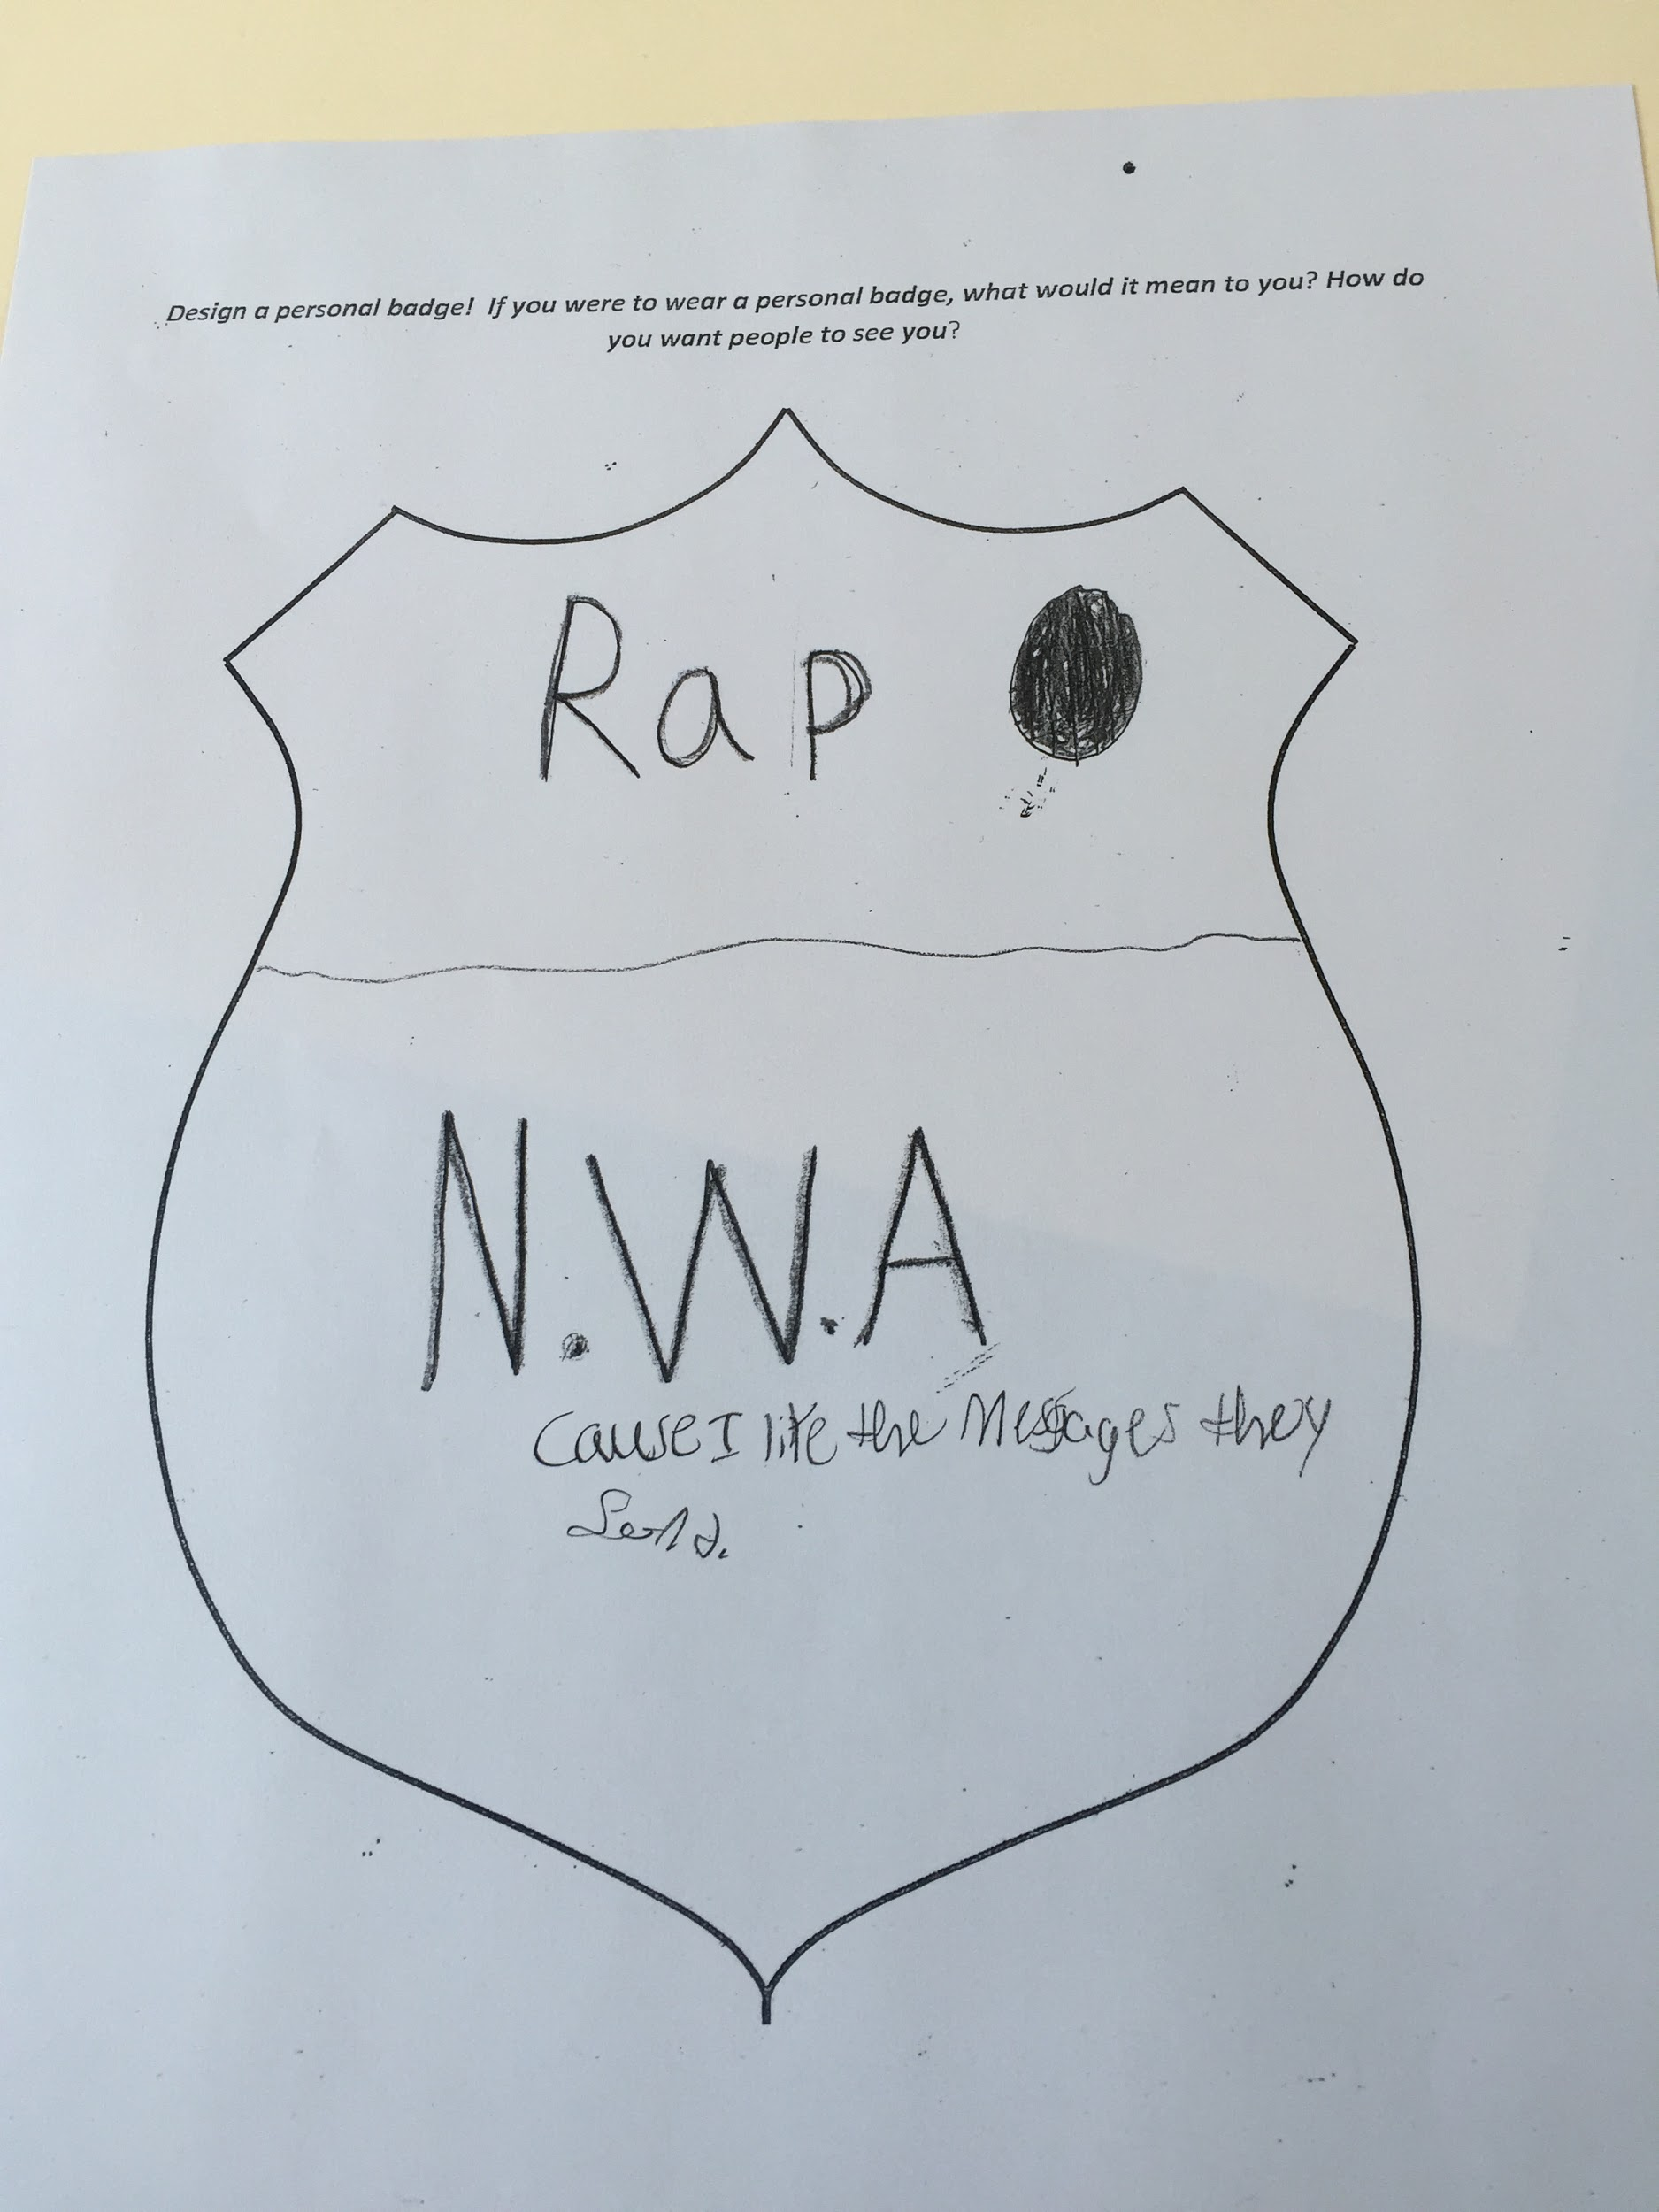 Design a personal badge! If you were to wear a personal badge, what would it mean to you? How do
you want people to see you?
Rap
N.W.A
Cause I like the Messages they
Send.